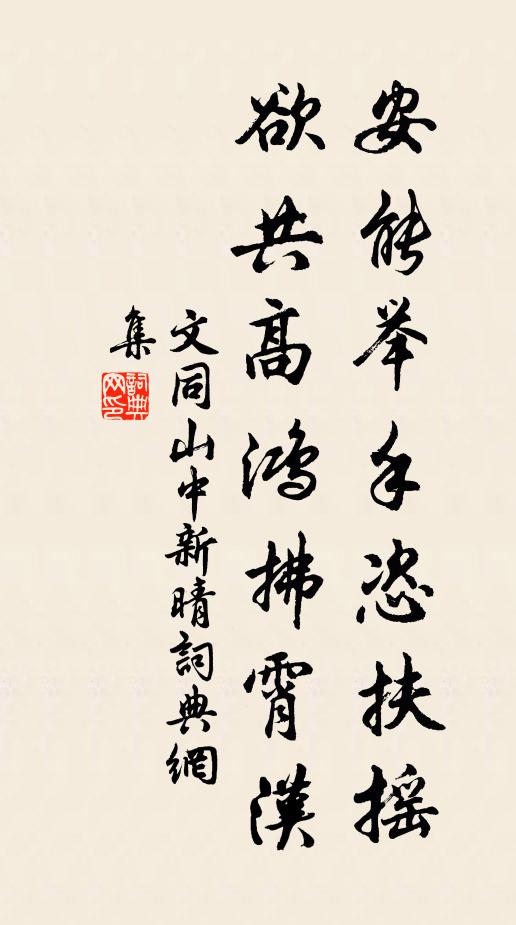 安能举手恣扶摇
欲共高鸿拂霄汉
文同山中新晴詞典網
集
詞典网印